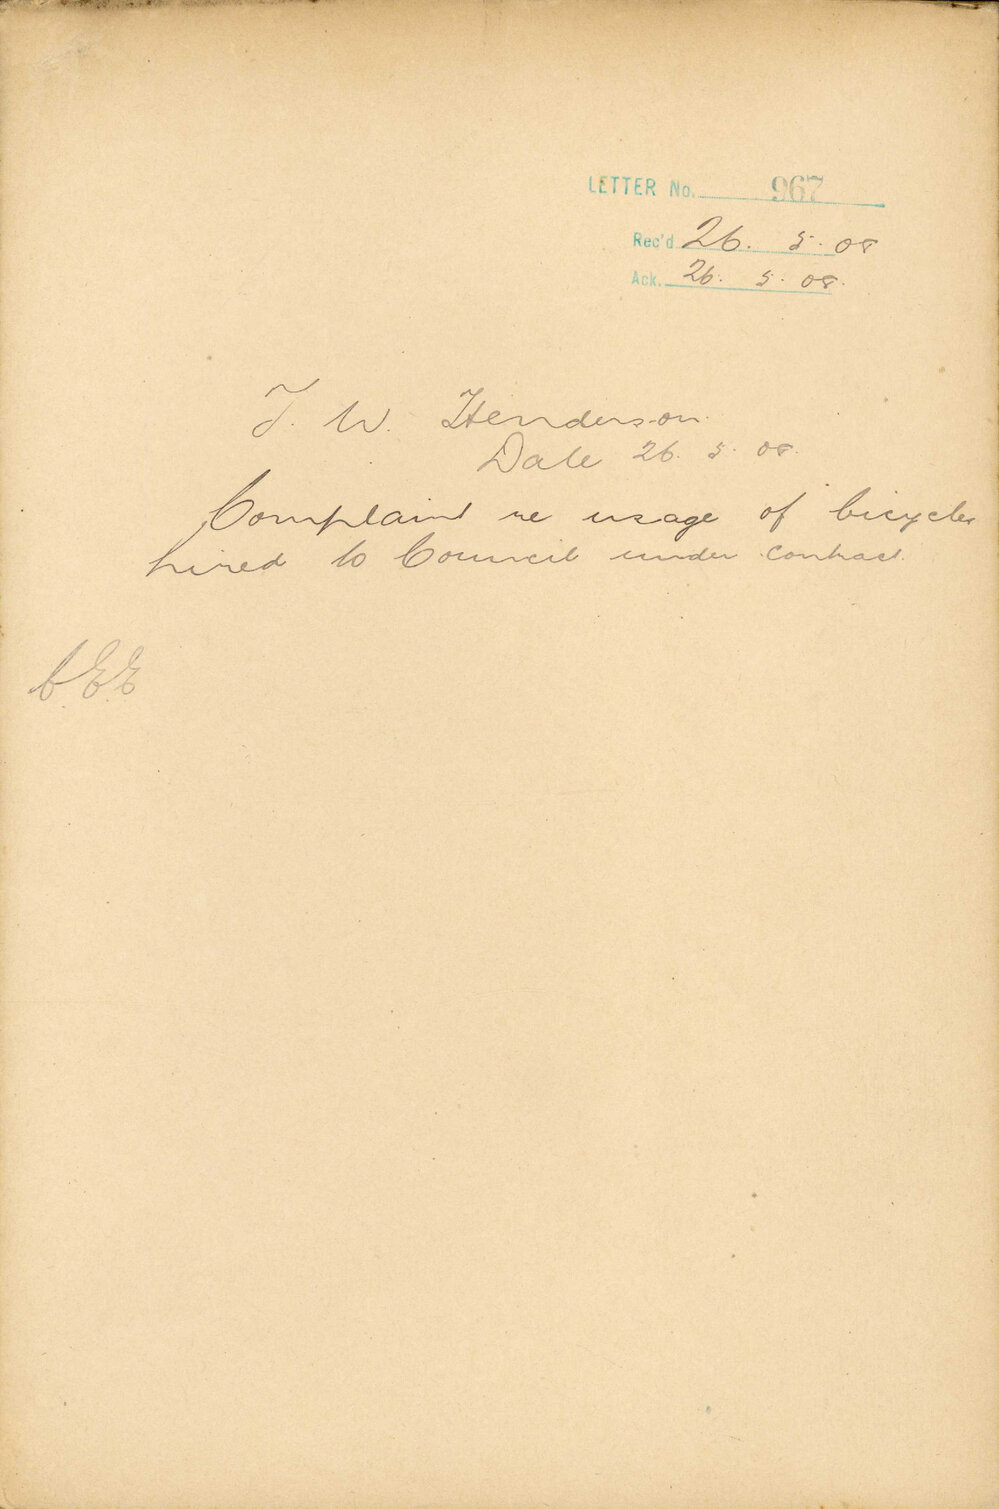 LETTER No. 967
Rec'd 26. 5. 08
Ack. 26. 5. 08.
J. W. Henderson.
Date 26. 5. 08.
Complaint re usage of bicycles
hired to Council under contract.
C.E.E